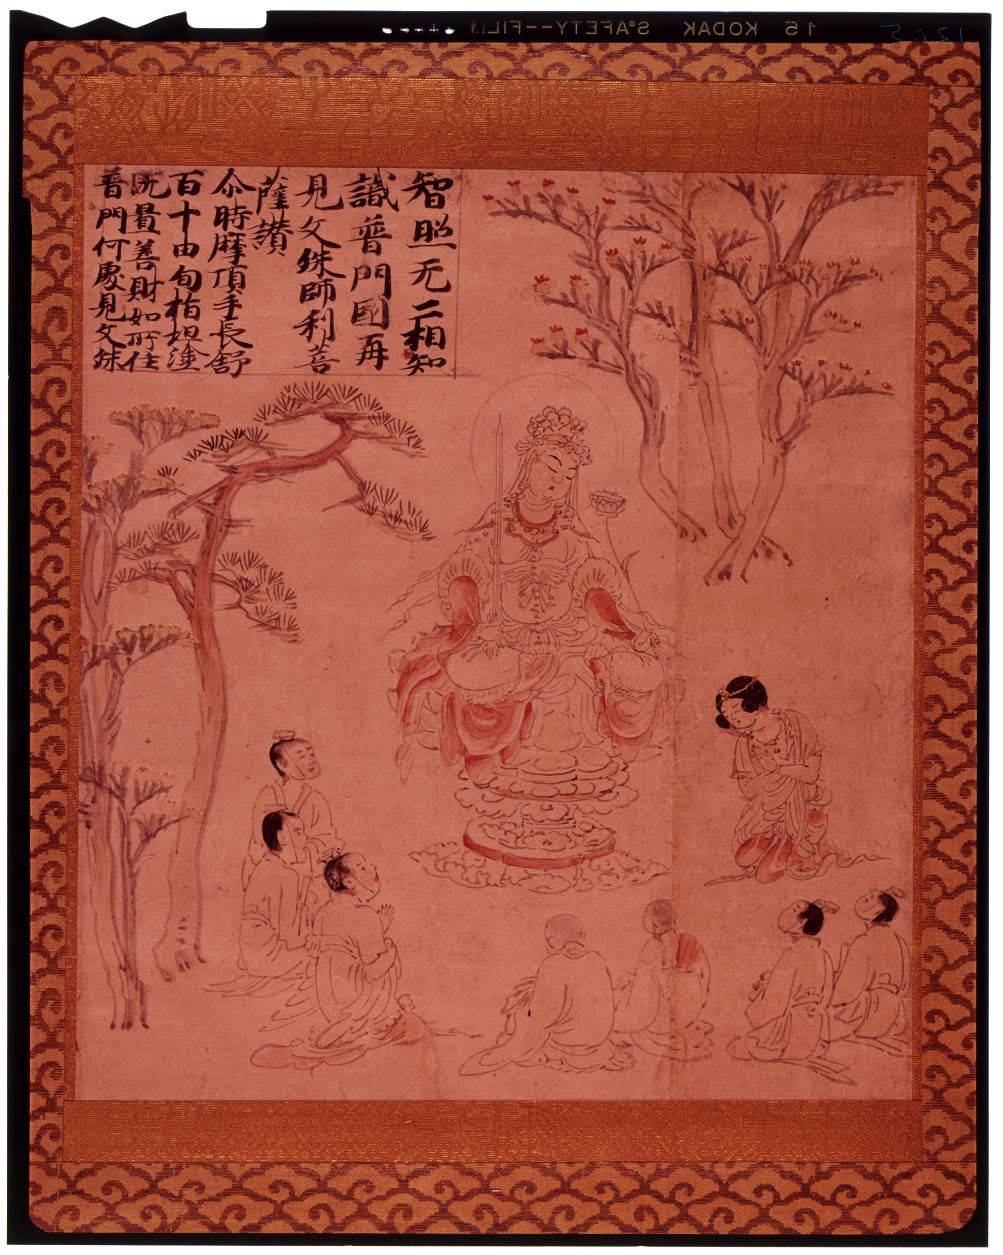 15 KODAK S°AFETY--FILM
智照无二相知
識普門國再
見文殊師利菩
薩讃
尒時摩頂手長舒
百十由旬指坦塗
既善財如所住
普門何處見文殊